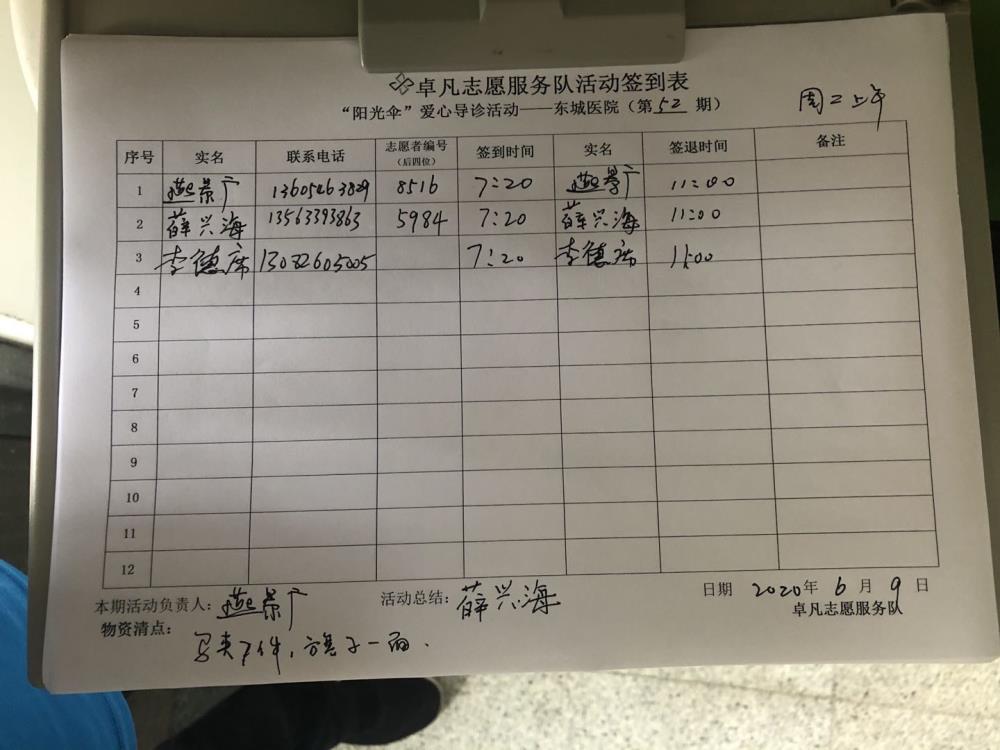 卓凡志愿服务队活动签到表
“阳光伞”爱心导诊活动——东城医院（第52期） 周二上午
序号 实名 联系电话 志愿者编号（后四位） 签到时间 实名 签退时间 备注
1 燕景广 13605463829 8516 7:20 燕景广 11:00
2 薛兴海 13563393863 5984 7:20 薛兴海 11:00
3 李德席 13082605005 7:20 李德席 11:00
4
5
6
7
8
9
10
11
12
本期活动负责人：燕景广 活动总结：薛兴海 日期 2020年6月9日
卓凡志愿服务队
物资清点：
马夹7件，旗子一面.